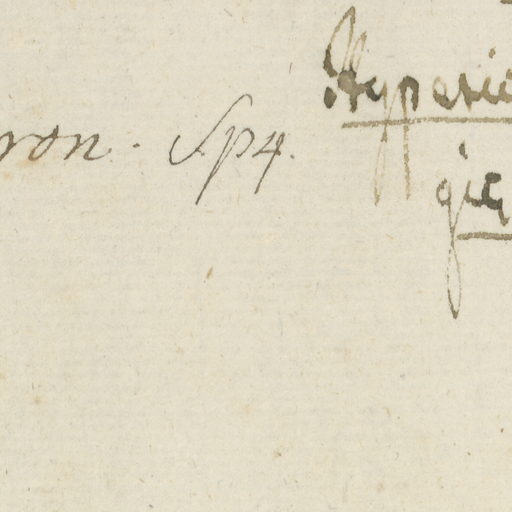 ron. Sp4.
Hyperic
gie